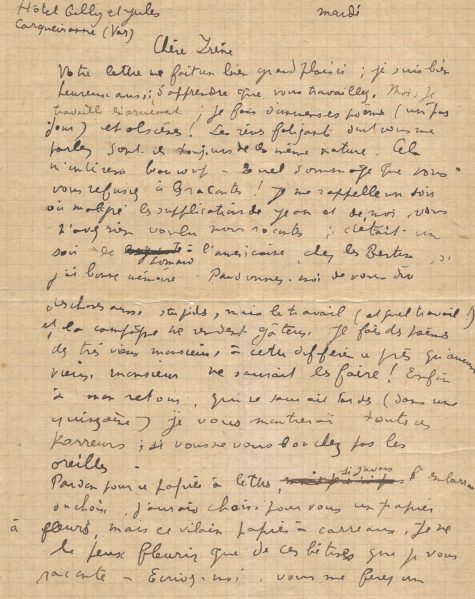 Hôtel Gilly et Jules
mardi
Carqueiranne (Var)
Chère Irène
Votre lettre me fait un bien grand plaisir ; je suis bien
heureux aussi d'apprendre que vous travaillez. Moi, je
travaille énormément ; je fais d'immenses poèmes (un par
jour) et obscènes ! Les rêves dont vous me
parlez sont toujours de la même nature. Cela
m'intéresse beaucoup - Quel dommage que vous
vous refusiez à raconter ! Je me rappelle un soir
où malgré les supplications de Jean et de moi, vous
n'avez rien voulu nous raconter ; c'était un
soir de homard à l'américaine chez les
j'ai bonne mémoire - Pardonnez-moi de vous dire
des choses aussi stupides, mais le travail (et quel travail !)
et la campagne me rendent gâteux. Je fais des poèmes
de très vieux monsieur, à cette différence près qu'aucun
vieux monsieur ne saurait les faire ! Enfin
à mon retour, qui ne saurait tarder (dans une
quinzaine) je vous montrerai toutes ces
horreurs ; si vous ne vous bouchez pas les
oreilles -
Pardon pour ce papier à lettre, si j'avais l'embarras
du choix, j'aurais choisi pour vous un papier
à fleurs, mais ce vilain papier à carreaux, je ne
le peux fleurir que de ces bêtises que je vous
raconte - Ecrivez-moi. vous me ferez un